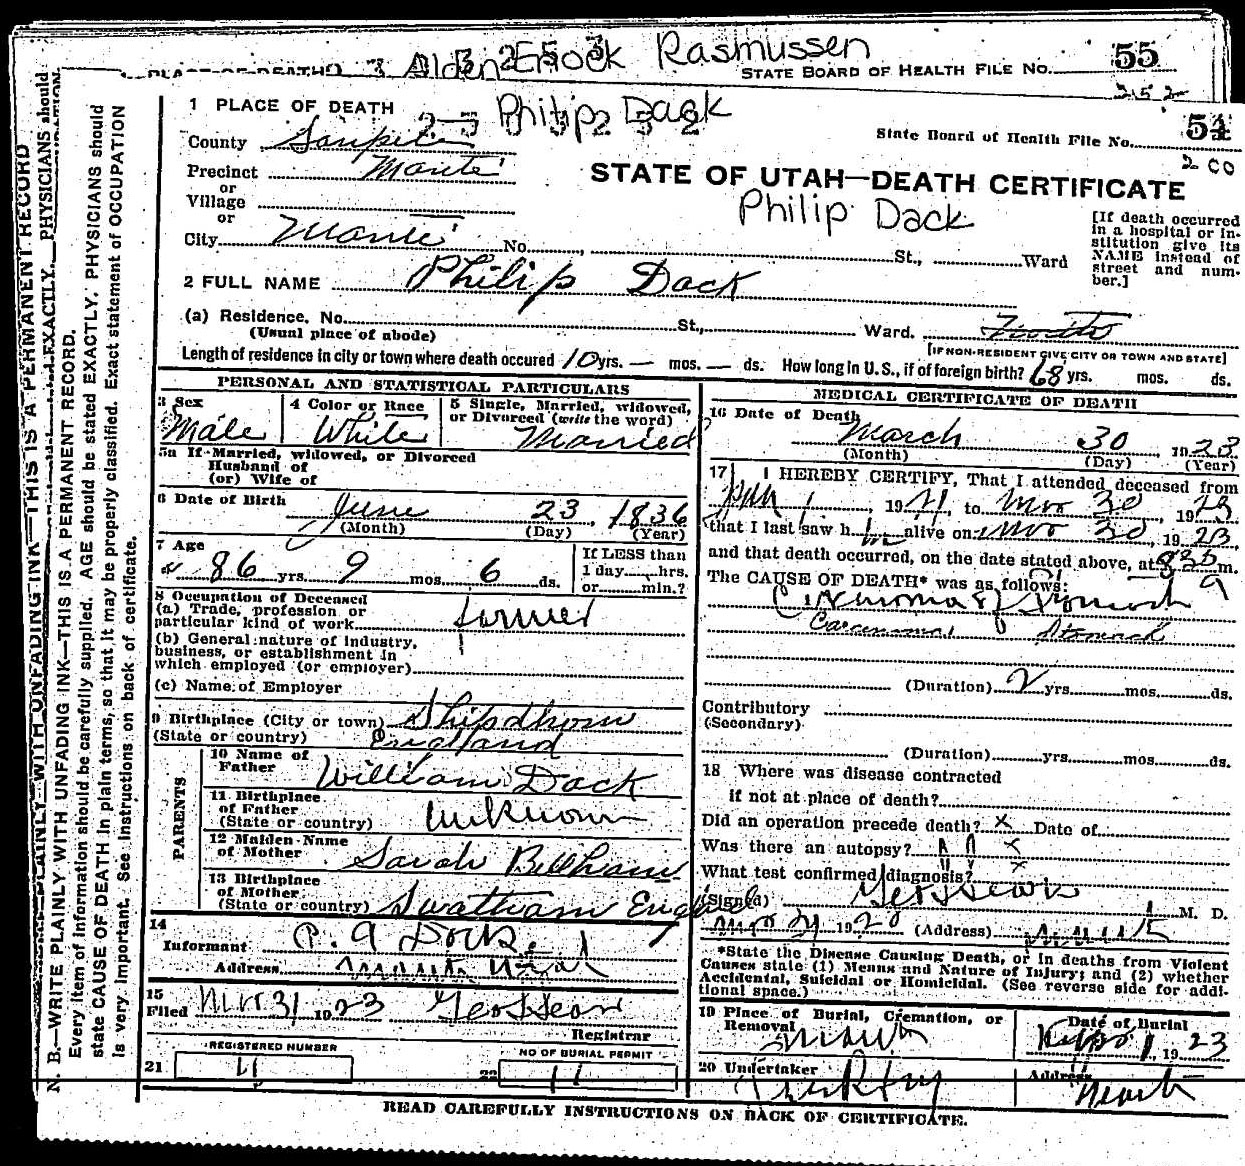 Alden Enock Rasmussen
STATE BOARD OF HEALTH FILE NO. 55
252
1 PLACE OF DEATH
Philip Dack
State Board of Health File No. 54
200
County Sanpete
Precinct Manti
or
Village
or
City Manti No. St., Ward
STATE OF UTAH—DEATH CERTIFICATE
Philip Dack
[If death occurred
in a hospital or in-
stitution give its
NAME instead of
street and num-
ber.]
2 FULL NAME Philip Dack
(a) Residence. No. St., Ward.
(Usual place of abode)
[IF NON-RESIDENT GIVE CITY OR TOWN AND STATE]
Length of residence in city or town where death occured 10 yrs. — mos. — ds. How long in U. S., if of foreign birth? 68 yrs. mos. ds.
PERSONAL AND STATISTICAL PARTICULARS
3 Sex
Male
4 Color or Race
White
5 Single, Married, widowed,
or Divorced (write the word)
Married
5a If Married, widowed, or Divorced
Husband of
(or) Wife of
6 Date of Birth June 23, 1836
(Month) (Day) (Year)
7 Age
86 yrs. 9 mos. 6 ds.
If LESS than
1 day, hrs.
or min.?
8 Occupation of Deceased
(a) Trade, profession or
particular kind of work farmer
(b) General nature of industry,
business, or establishment in
which employed (or employer)
(c) Name of Employer
9 Birthplace (City or town) Shipdhom
(State or country) England
PARENTS
10 Name of
Father William Dack
11 Birthplace
of Father
(State or country) unknown
12 Maiden Name
of Mother Sarah Bellham
13 Birthplace
of Mother
(State or country) Swatham England
14
Informant P. A Dack.
Address Manti Utah
15
Filed Mar 31 1923
Registrar
REGISTERED NUMBER
21 11
NO OF BURIAL PERMIT
22 11
MEDICAL CERTIFICATE OF DEATH
16 Date of Death
March 30 1923
(Month) (Day) (Year)
17 I HEREBY CERTIFY, That I attended deceased from
Jan 1, 19 to Mar 30, 1923
that I last saw him alive on Mar 30, 1923,
and that death occurred, on the date stated above, at 835 m.
The CAUSE OF DEATH* was as follows:
Carcinoma of Stomach
Carcinoma Stomach
(Duration) 2 yrs. mos. ds.
Contributory
(Secondary)
(Duration) yrs. mos. ds.
18 Where was disease contracted
if not at place of death?
Did an operation precede death? x Date of
Was there an autopsy? x
What test confirmed diagnosis? x
(Signed) M. D.
19 (Address) Manti
*State the Disease Causing Death, or in deaths from Violent
Causes state (1) Means and Nature of Injury; and (2) whether
Accidental, Suicidal or Homicidal. (See reverse side for addi-
tional space.)
19 Place of Burial, Cremation, or
Removal Manti
Date of Burial
1, 1923
20 Undertaker
Address
Manti
READ CAREFULLY INSTRUCTIONS ON BACK OF CERTIFICATE.
N. B.—WRITE PLAINLY WITH UNFADING INK—THIS IS A PERMANENT RECORD.
Every item of information should be carefully supplied. AGE should be stated EXACTLY. PHYSICIANS should
state CAUSE OF DEATH in plain terms, so that it may be properly classified. Exact statement of OCCUPATION
is very important. See instructions on back of certificate.